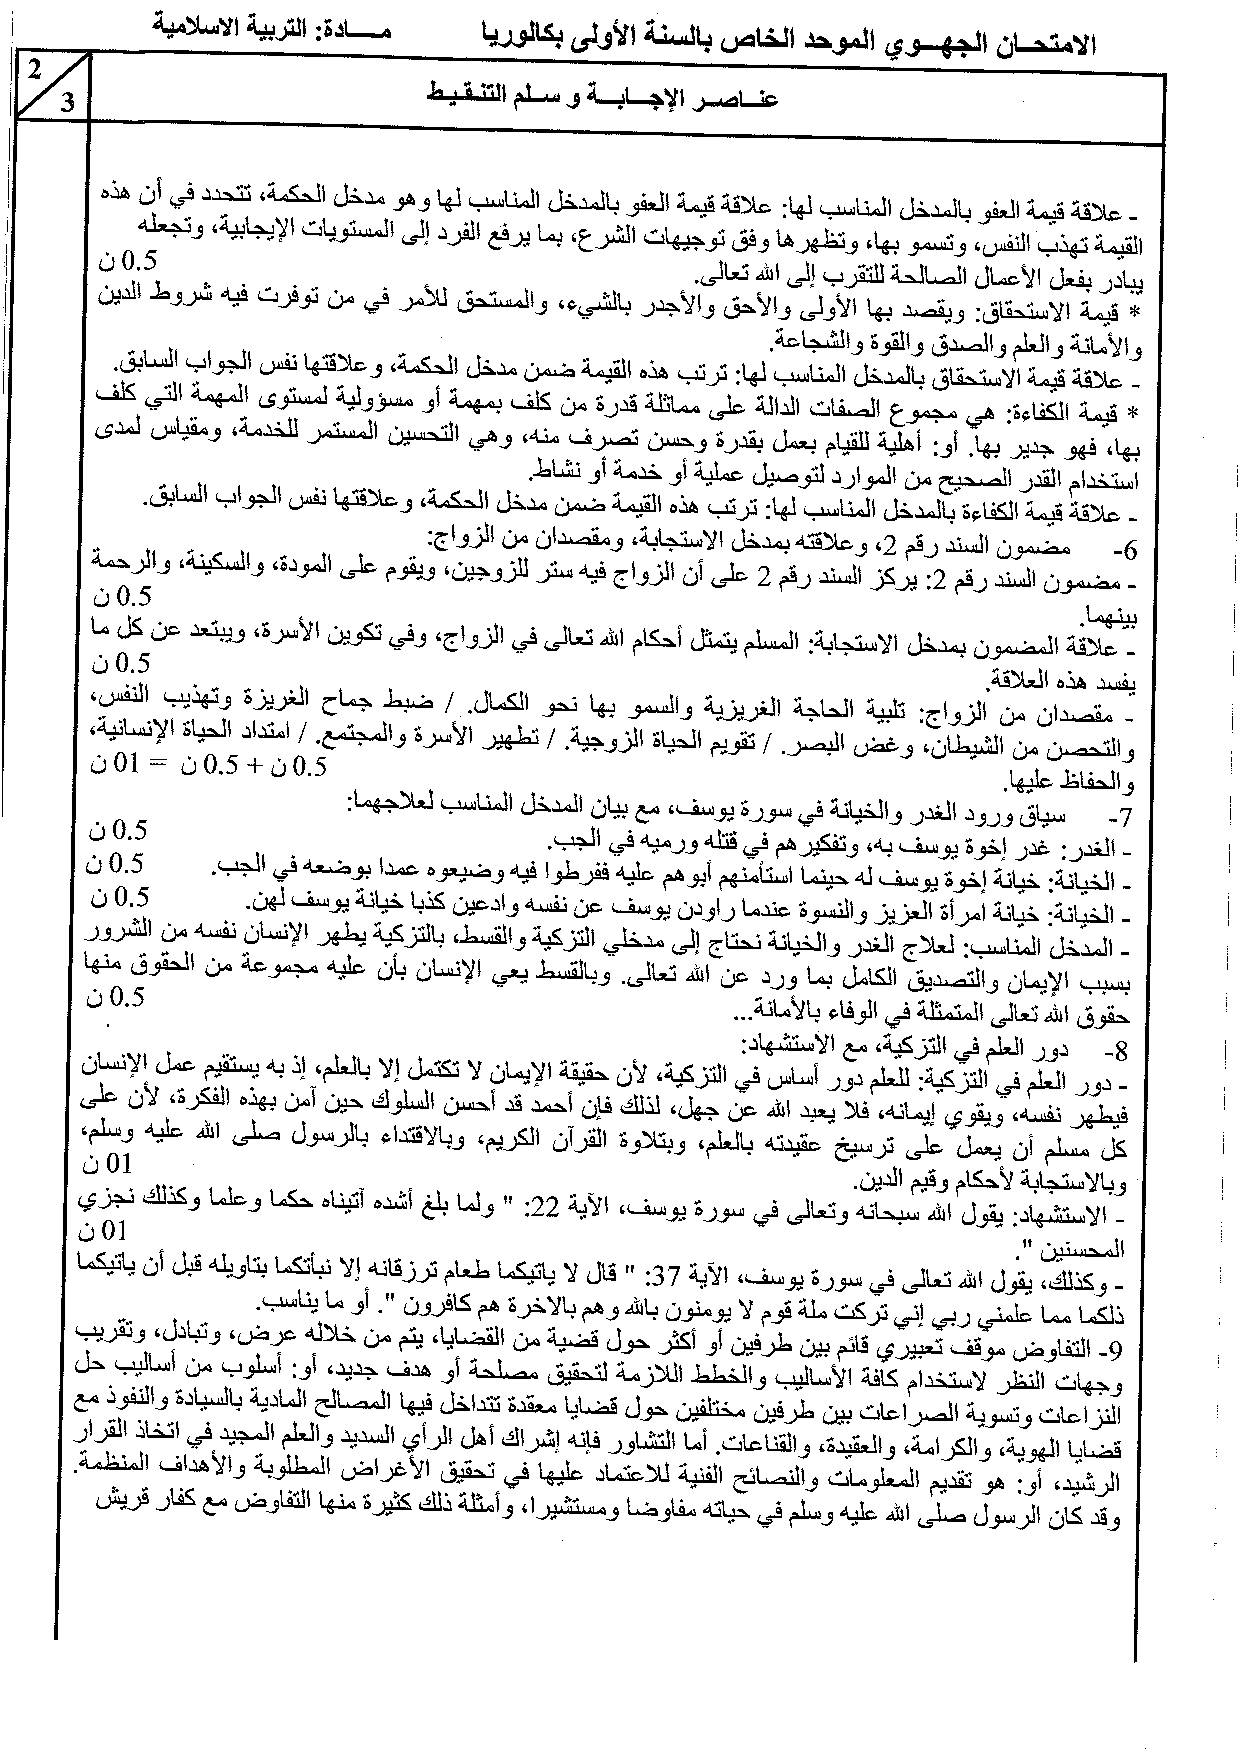 الامتحـان الجهـوي الموحد الخاص بالسنة الأولى بكالوريا مـــادة: التربية الاسلامية
2
3
عنـاصـر الإجـابـة و سـلم التنـقـيـط
- علاقة قيمة العفو بالمدخل المناسب لها: علاقة قيمة العفو بالمدخل المناسب لها وهو مدخل الحكمة، تتحدد في أن هذه
القيمة تهذب النفس، وتسمو بها، وتطهرها وفق توجيهات الشرع، بما يرفع الفرد إلى المستويات الإيجابية، وتجعله
يبادر بفعل الأعمال الصالحة للتقرب إلى الله تعالى. 0.5 ن
* قيمة الاستحقاق: ويقصد بها الأولى والأحق والأجدر بالشيء، والمستحق للأمر في من توفرت فيه شروط الدين
والأمانة والعلم والصدق والقوة والشجاعة.
- علاقة قيمة الاستحقاق بالمدخل المناسب لها: ترتب هذه القيمة ضمن مدخل الحكمة، وعلاقتها نفس الجواب السابق.
* قيمة الكفاءة: هي مجموع الصفات الدالة على مماثلة قدرة من كلف بمهمة أو مسؤولية لمستوى المهمة التي كلف
بها، فهو جدير بها. أو: أهلية للقيام بعمل بقدرة وحسن تصرف منه، وهي التحسين المستمر للخدمة، ومقياس لمدى
استخدام القدر الصحيح من الموارد لتوصيل عملية أو خدمة أو نشاط.
- علاقة قيمة الكفاءة بالمدخل المناسب لها: ترتب هذه القيمة ضمن مدخل الحكمة، وعلاقتها نفس الجواب السابق.
6- مضمون السند رقم 2، وعلاقته بمدخل الاستجابة، ومقصدان من الزواج:
- مضمون السند رقم 2: يركز السند رقم 2 على أن الزواج فيه ستر للزوجين، ويقوم على المودة، والسكينة، والرحمة
بينهما. 0.5 ن
- علاقة المضمون بمدخل الاستجابة: المسلم يتمثل أحكام الله تعالى في الزواج، وفي تكوين الأسرة، ويبتعد عن كل ما
يفسد هذه العلاقة. 0.5 ن
- مقصدان من الزواج: تلبية الحاجة الغريزية والسمو بها نحو الكمال. / ضبط جماح الغريزة وتهذيب النفس،
والتحصن من الشيطان، وغض البصر. / تقويم الحياة الزوجية. / تطهير الأسرة والمجتمع. / امتداد الحياة الإنسانية،
والحفاظ عليها. 0.5 ن + 0.5 ن = 01 ن
7- سياق ورود الغدر والخيانة في سورة يوسف، مع بيان المدخل المناسب لعلاجهما:
- الغدر: غدر إخوة يوسف به، وتفكيرهم في قتله ورميه في الجب. 0.5 ن
- الخيانة: خيانة إخوة يوسف له حينما استأمنهم أبوهم عليه ففرطوا فيه وضيعوه عمدا بوضعه في الجب. 0.5 ن
- الخيانة: خيانة امرأة العزيز والنسوة عندما راودن يوسف عن نفسه وادعين كذبا خيانة يوسف لهن. 0.5 ن
- المدخل المناسب: لعلاج الغدر والخيانة نحتاج إلى مدخلي التزكية والقسط، بالتزكية يطهر الإنسان نفسه من الشرور
بسبب الإيمان والتصديق الكامل بما ورد عن الله تعالى. وبالقسط يعي الإنسان بأن عليه مجموعة من الحقوق منها
حقوق الله تعالى المتمثلة في الوفاء بالأمانة... 0.5 ن
8- دور العلم في التزكية، مع الاستشهاد:
- دور العلم في التزكية: للعلم دور أساس في التزكية، لأن حقيقة الإيمان لا تكتمل إلا بالعلم، إذ به يستقيم عمل الإنسان
فيطهر نفسه، ويقوي إيمانه، فلا يعبد الله عن جهل، لذلك فإن أحمد قد أحسن السلوك حين آمن بهذه الفكرة، لأن على
كل مسلم أن يعمل على ترسيخ عقيدته بالعلم، وبتلاوة القرآن الكريم، وبالاقتداء بالرسول صلى الله عليه وسلم،
وبالاستجابة لأحكام وقيم الدين. 01 ن
- الاستشهاد: يقول الله سبحانه وتعالى في سورة يوسف، الآية 22: " ولما بلغ أشده آتيناه حكما وعلما وكذلك نجزي
المحسنين ". 01 ن
- وكذلك، يقول الله تعالى في سورة يوسف، الآية 37: " قال لا ياتيكما طعام ترزقانه إلا نبأتكما بتاويله قبل أن ياتيكما
ذلكما مما علمني ربي إني تركت ملة قوم لا يومنون بالله وهم بالاخرة هم كافرون ". أو ما يناسب.
9- التفاوض موقف تعبيري قائم بين طرفين أو أكثر حول قضية من القضايا، يتم من خلاله عرض، وتبادل، وتقريب
وجهات النظر لاستخدام كافة الأساليب والخطط اللازمة لتحقيق مصلحة أو هدف جديد، أو: أسلوب من أساليب حل
النزاعات وتسوية الصراعات بين طرفين مختلفين حول قضايا معقدة تتداخل فيها المصالح المادية بالسيادة والنفوذ مع
قضايا الهوية، والكرامة، والعقيدة، والقناعات. أما التشاور فإنه إشراك أهل الرأي السديد والعلم المجيد في اتخاذ القرار
الرشيد، أو: هو تقديم المعلومات والنصائح الفنية للاعتماد عليها في تحقيق الأغراض المطلوبة والأهداف المنظمة.
وقد كان الرسول صلى الله عليه وسلم في حياته مفاوضا ومستشيرا، وأمثلة ذلك كثيرة منها التفاوض مع كفار قريش